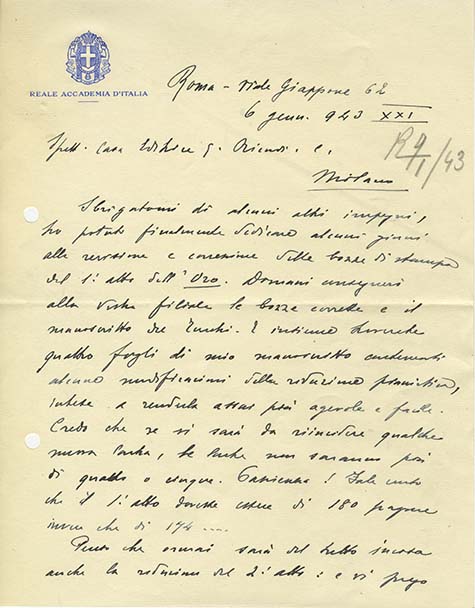 REALE ACCADEMIA D'ITALIA
Roma - Viale Giappone 62
6 genn. 943 XXI
R 9/1/43
Spett. Casa Editrice G. Ricordi e C.
Milano
Sbrigatomi di alcuni altri impegni,
ho potuto finalmente dedicare alcuni giorni
alla revisione e correzione delle bozze di stampa
del 1º atto dell'Oro. Domani consegnerò
alla vostra filiale le bozze corrette e il
manoscritto del Zecchi. E insieme troverete
quattro fogli di mio manoscritto contenenti
alcune modificazioni della riduzione primitiva,
intese a renderla assai più agevole e facile.
Credo che se vi sarà da reincidere qualche
nuova lastra, le lastre non saranno più
di quattro o cinque. Pazienza! Fate conto
che il 1º atto dovesse essere di 180 pagine
invece che di 174 ....
Penso che ormai sarà del tutto incisa
anche la riduzione del 2º atto: e vi prego